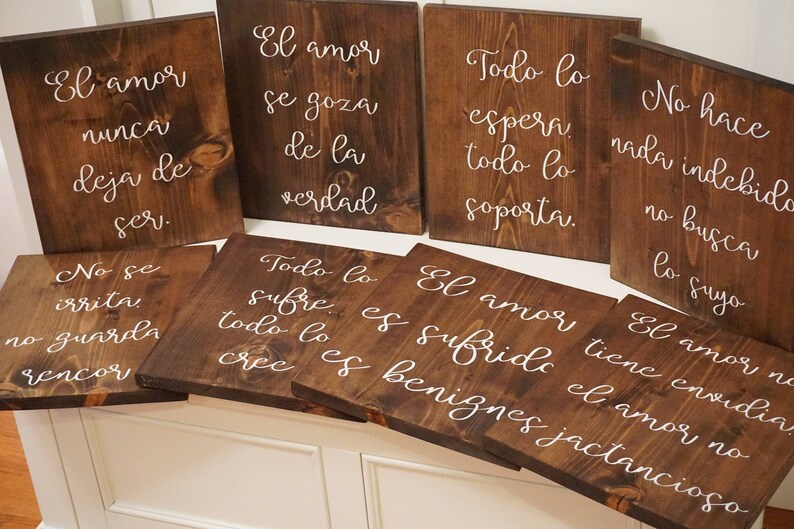 El amor
nunca
deja de
ser.
El amor
se goza
de la
verdad
Todo lo
espera,
todo lo
soporta.
No hace
nada indebido
no busca
lo suyo
No se
irrita,
no guarda
rencor
Todo lo
sufre,
todo lo
cree
El amor
es sufrido
es benign
El amor no
tiene envidia,
el amor no
es jactancioso